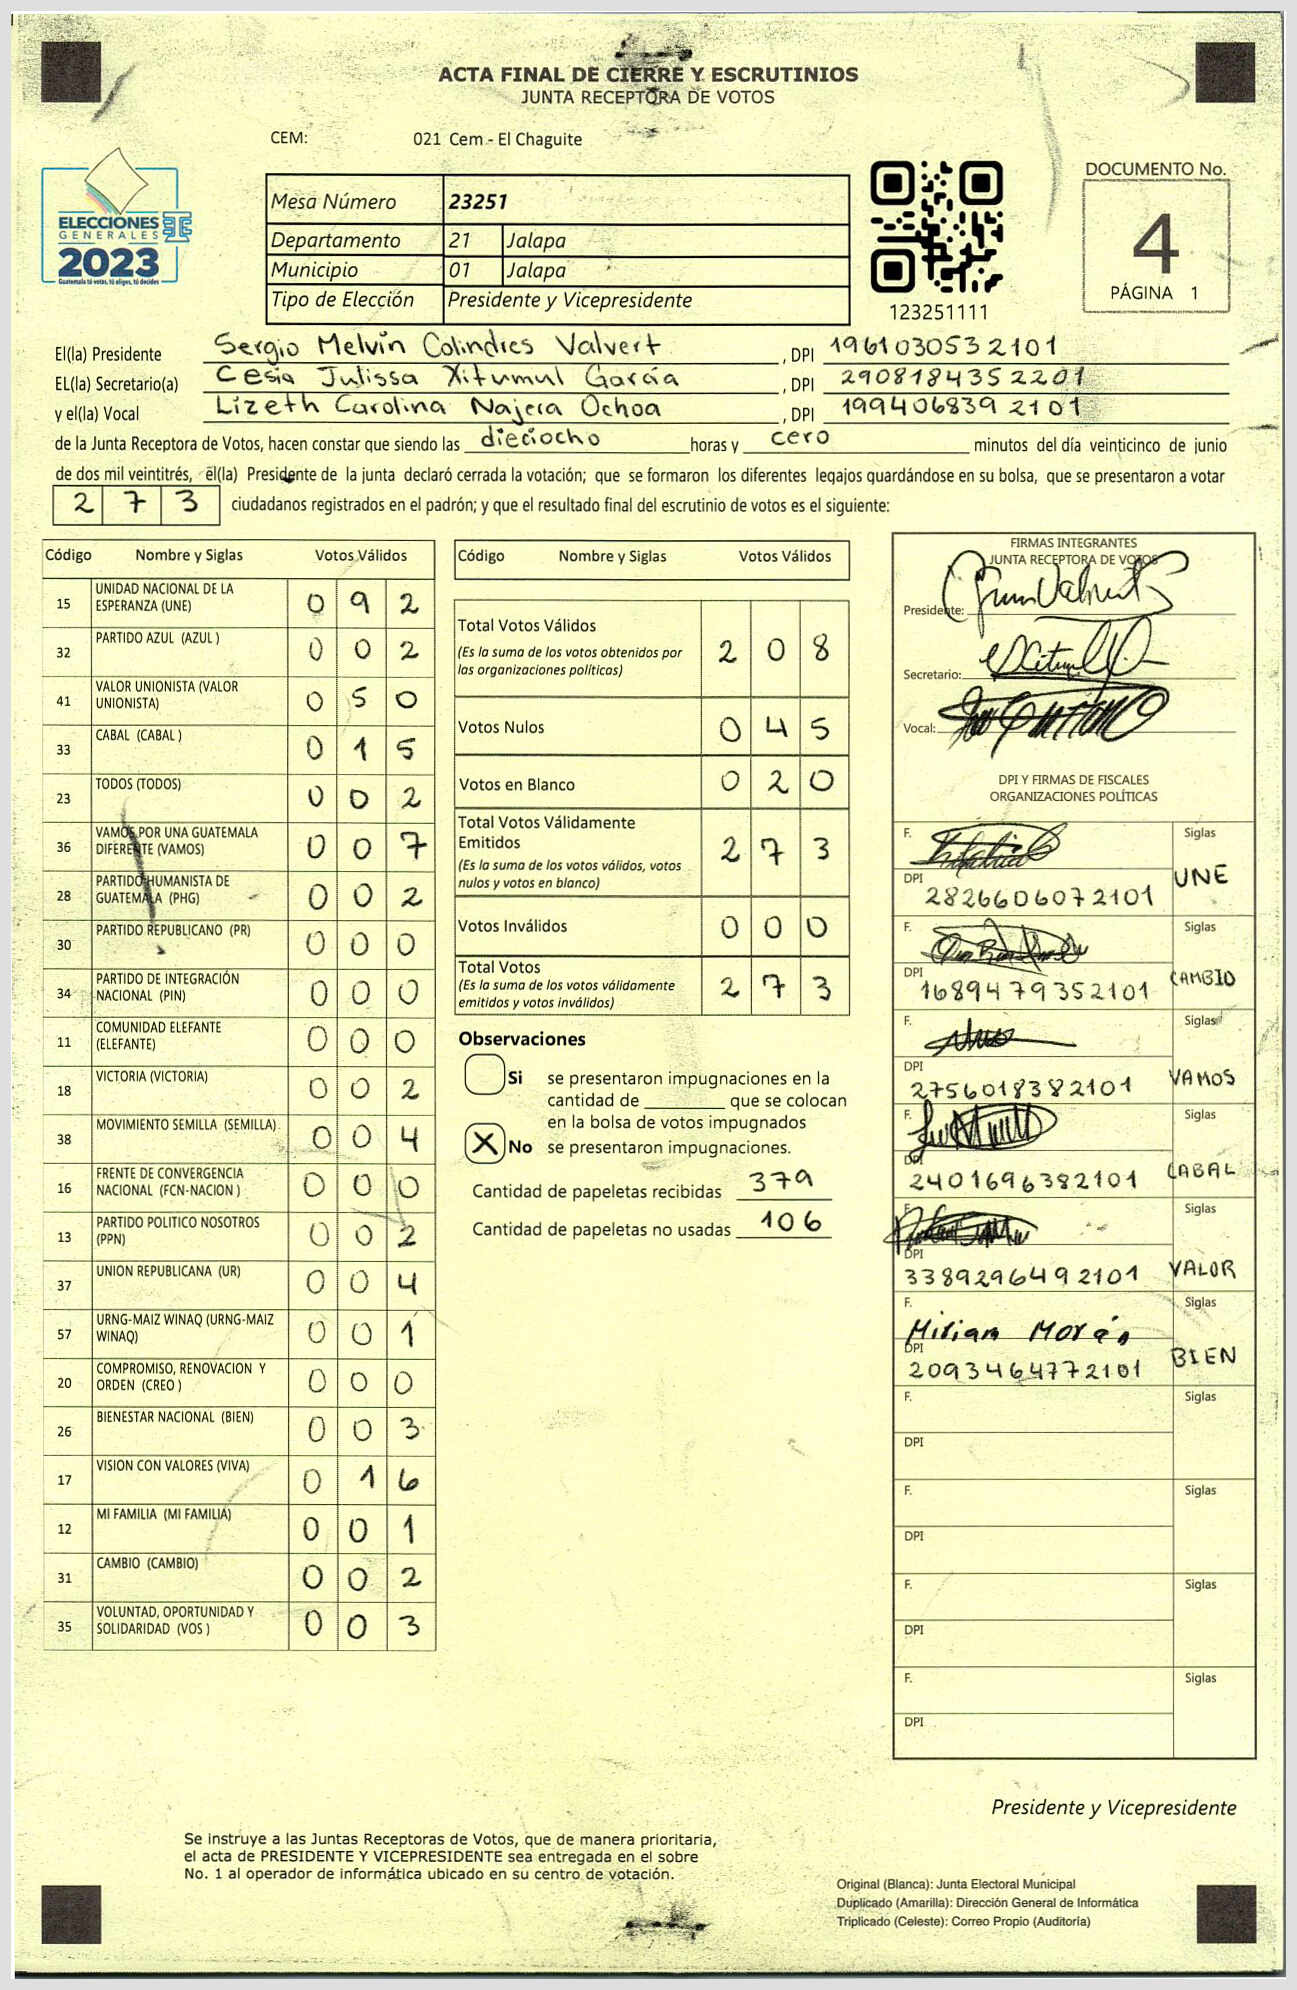 ACTA FINAL DE CIERRE Y ESCRUTINIOS
JUNTA RECEPTORA DE VOTOS
CEM: 021 Cem - El Chaguite
ELECCIONES
GENERALES
2023
Guatemala tú votas, tú eliges, tú decides
Mesa Número 23251
Departamento 21 Jalapa
Municipio 01 Jalapa
Tipo de Elección Presidente y Vicepresidente
123251111
DOCUMENTO No.
4
PÁGINA 1
El(la) Presidente Sergio Melvin Colindres Valvert, DPI 1961030532101
EL(la) Secretario(a) Cesia Julissa Xitumul García, DPI 2908184352201
y el(la) Vocal Lizeth Carolina Najera Ochoa, DPI 1994068392101
de la Junta Receptora de Votos, hacen constar que siendo las dieciocho horas y cero minutos del día veinticinco de junio
de dos mil veintitrés, el(la) Presidente de la junta declaró cerrada la votación; que se formaron los diferentes legajos guardándose en su bolsa, que se presentaron a votar
273 ciudadanos registrados en el padrón; y que el resultado final del escrutinio de votos es el siguiente:
Código Nombre y Siglas Votos Válidos
15 UNIDAD NACIONAL DE LA ESPERANZA (UNE) 092
32 PARTIDO AZUL (AZUL ) 002
41 VALOR UNIONISTA (VALOR UNIONISTA) 050
33 CABAL (CABAL ) 015
23 TODOS (TODOS) 002
36 VAMOS POR UNA GUATEMALA DIFERENTE (VAMOS) 007
28 PARTIDO HUMANISTA DE GUATEMALA (PHG) 002
30 PARTIDO REPUBLICANO (PR) 000
34 PARTIDO DE INTEGRACIÓN NACIONAL (PIN) 000
11 COMUNIDAD ELEFANTE (ELEFANTE) 000
18 VICTORIA (VICTORIA) 002
38 MOVIMIENTO SEMILLA (SEMILLA) 004
16 FRENTE DE CONVERGENCIA NACIONAL (FCN-NACION ) 000
13 PARTIDO POLITICO NOSOTROS (PPN) 002
37 UNION REPUBLICANA (UR) 004
57 URNG-MAIZ WINAQ (URNG-MAIZ WINAQ) 001
20 COMPROMISO, RENOVACION Y ORDEN (CREO ) 000
26 BIENESTAR NACIONAL (BIEN) 003
17 VISION CON VALORES (VIVA) 016
12 MI FAMILIA (MI FAMILIA) 001
31 CAMBIO (CAMBIO) 002
35 VOLUNTAD, OPORTUNIDAD Y SOLIDARIDAD (VOS ) 003
Código Nombre y Siglas Votos Válidos
Total Votos Válidos 208
(Es la suma de los votos obtenidos por
las organizaciones políticas)
Votos Nulos 045
Votos en Blanco 020
Total Votos Válidamente
Emitidos 273
(Es la suma de los votos válidos, votos
nulos y votos en blanco)
Votos Inválidos 000
Total Votos 273
(Es la suma de los votos válidamente
emitidos y votos inválidos)
Observaciones
Si se presentaron impugnaciones en la
cantidad de ________ que se colocan
en la bolsa de votos impugnados
X No se presentaron impugnaciones.
Cantidad de papeletas recibidas 379
Cantidad de papeletas no usadas 106
FIRMAS INTEGRANTES
JUNTA RECEPTORA DE VOTOS
Presidente:
Secretario:
Vocal:
DPI Y FIRMAS DE FISCALES
ORGANIZACIONES POLÍTICAS
F. Siglas
DPI UNE
2826606072101
F. Siglas
DPI CAMBIO
1689479352101
F. Siglas
DPI VAMOS
2756018382101
F. Siglas
DPI CABAL
2401696382101
F. Siglas
DPI VALOR
3389296492101
F. Siglas
Miriam Morán
DPI BIEN
2093464772101
F. Siglas
DPI
F. Siglas
DPI
F. Siglas
DPI
F. Siglas
DPI
Presidente y Vicepresidente
Se instruye a las Juntas Receptoras de Votos, que de manera prioritaria,
el acta de PRESIDENTE Y VICEPRESIDENTE sea entregada en el sobre
No. 1 al operador de informática ubicado en su centro de votación.
Original (Blanca): Junta Electoral Municipal
Duplicado (Amarilla): Dirección General de Informática
Triplicado (Celeste): Correo Propio (Auditoría)